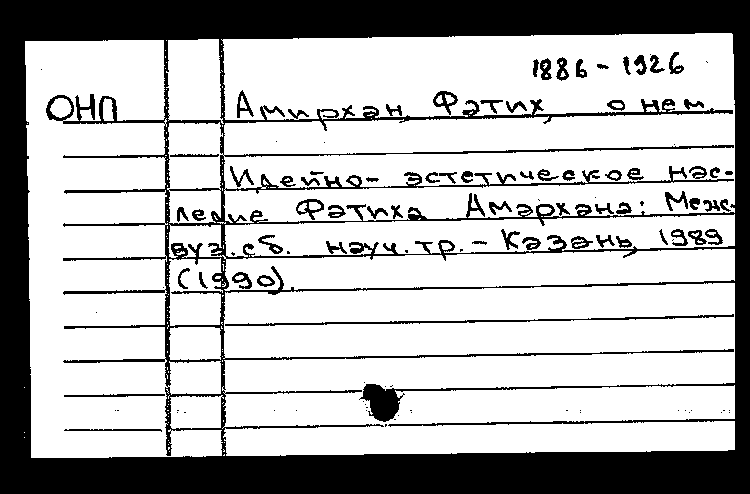 1886-1926
ОНП Амирхан, Фәтих, о нем.
Идейно-эстетическое нас-
ледие Фәтиха Амәрхана: Меж-
вуз. сб. науч. тр. - Казань, 1989
(1990).